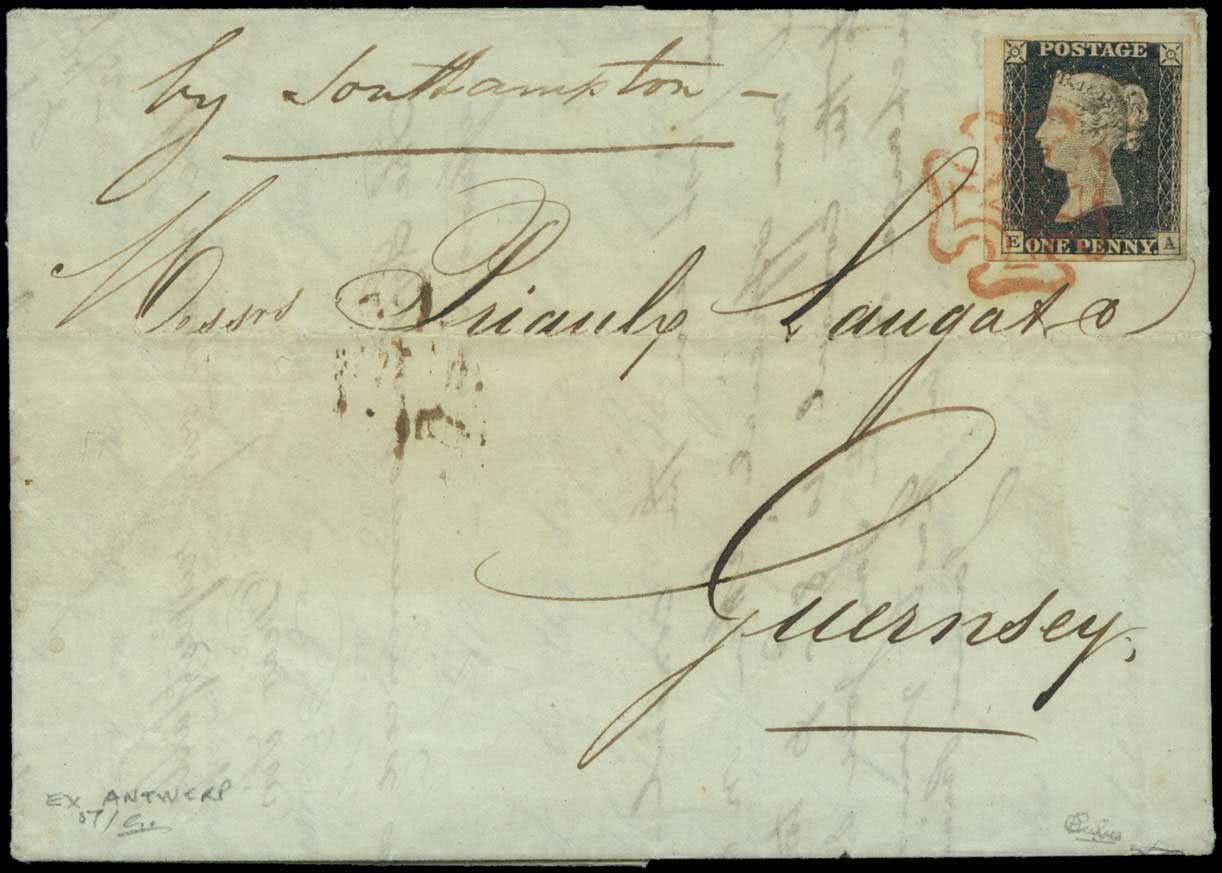 by Southampton -
POSTAGE
E ONE PENNY. A
Messrs Priaulx Laugat &
Guernsey,
EX ANTWERP
07/